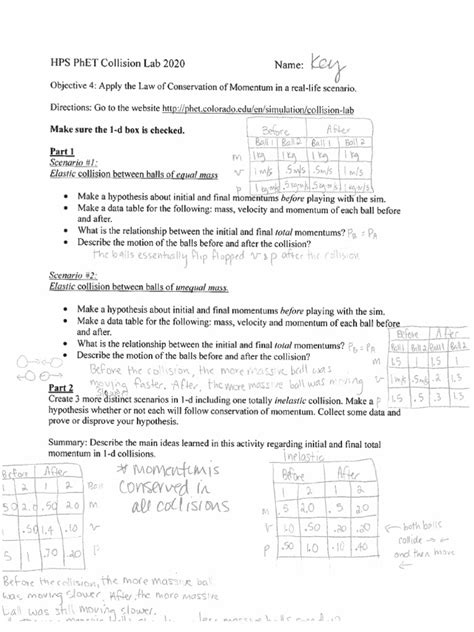 HPS PhET Collision Lab 2020
Name: Key
Objective 4: Apply the Law of Conservation of Momentum in a real-life scenario.
Directions: Go to the website http://phet.colorado.edu/en/simulation/collision-lab
Make sure the 1-d box is checked.
Before After
Ball 1 Ball 2 Ball 1 Ball 2
m 1 kg 1 kg 1 kg 1 kg
v 1 m/s .5 m/s .5 m/s 1 m/s
p
Part 1
Scenario #1:
Elastic collision between balls of equal mass
• Make a hypothesis about initial and final momentums before playing with the sim.
• Make a data table for the following: mass, velocity and momentum of each ball before
and after.
• What is the relationship between the initial and final total momentums? PB = PA
• Describe the motion of the balls before and after the collision?
The balls essentially flip flopped v & p after the collision
Scenario #2:
Elastic collision between balls of unequal mass.
• Make a hypothesis about initial and final momentums before playing with the sim.
• Make a data table for the following: mass, velocity and momentum of each ball before
and after.
• What is the relationship between the initial and final total momentums? PB = PA
• Describe the motion of the balls before and after the collision?
Before the collision, the more massive ball was
moving faster. After, the more massive ball was moving
slower.
Before After
Ball 1 Ball 2 Ball 1 Ball 2
m 1.5 1 1.5 1
v 1 m/s .5 .2
p 1.5 .5 .3 1.5
Part 2
Create 3 more distinct scenarios in 1-d including one totally inelastic collision. Make a
hypothesis whether or not each will follow conservation of momentum. Collect some data and
prove or disprove your hypothesis.
Summary: Describe the main ideas learned in this activity regarding initial and final total
momentum in 1-d collisions.
Before After
1 2 1 2
m
v
p
* Momentum is
conserved in
all collisions
Inelastic
Before After
1 2 1 2
m .50 2.0 .50 2.0
v 1.0 .50 .20 .20
p .50 1.0 .10 .40
← both balls
collide
and then move
Before the collision, the more massive ball
was moving slower. After, the more massive
ball was still moving slower.